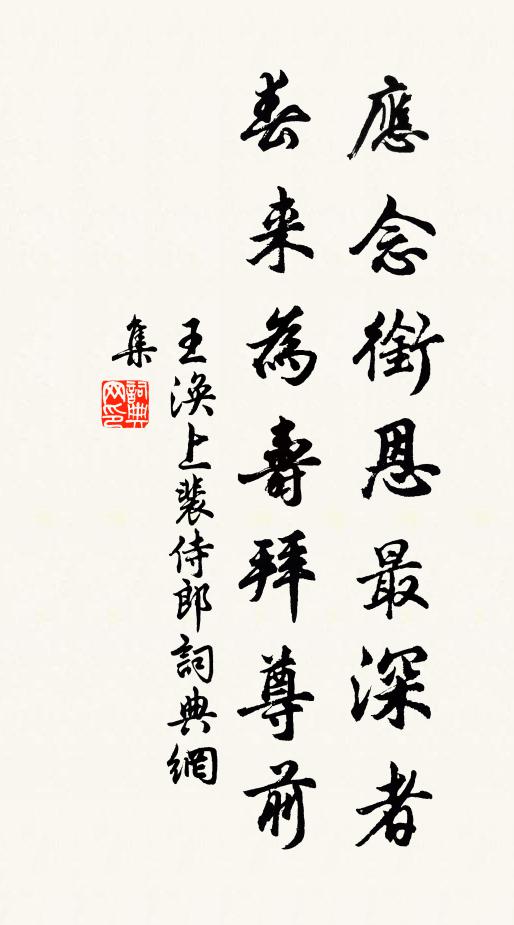 應念銜恩最深者
春來為壽拜尊前
王渙上裴侍郎詞典網
集
詞典
网印